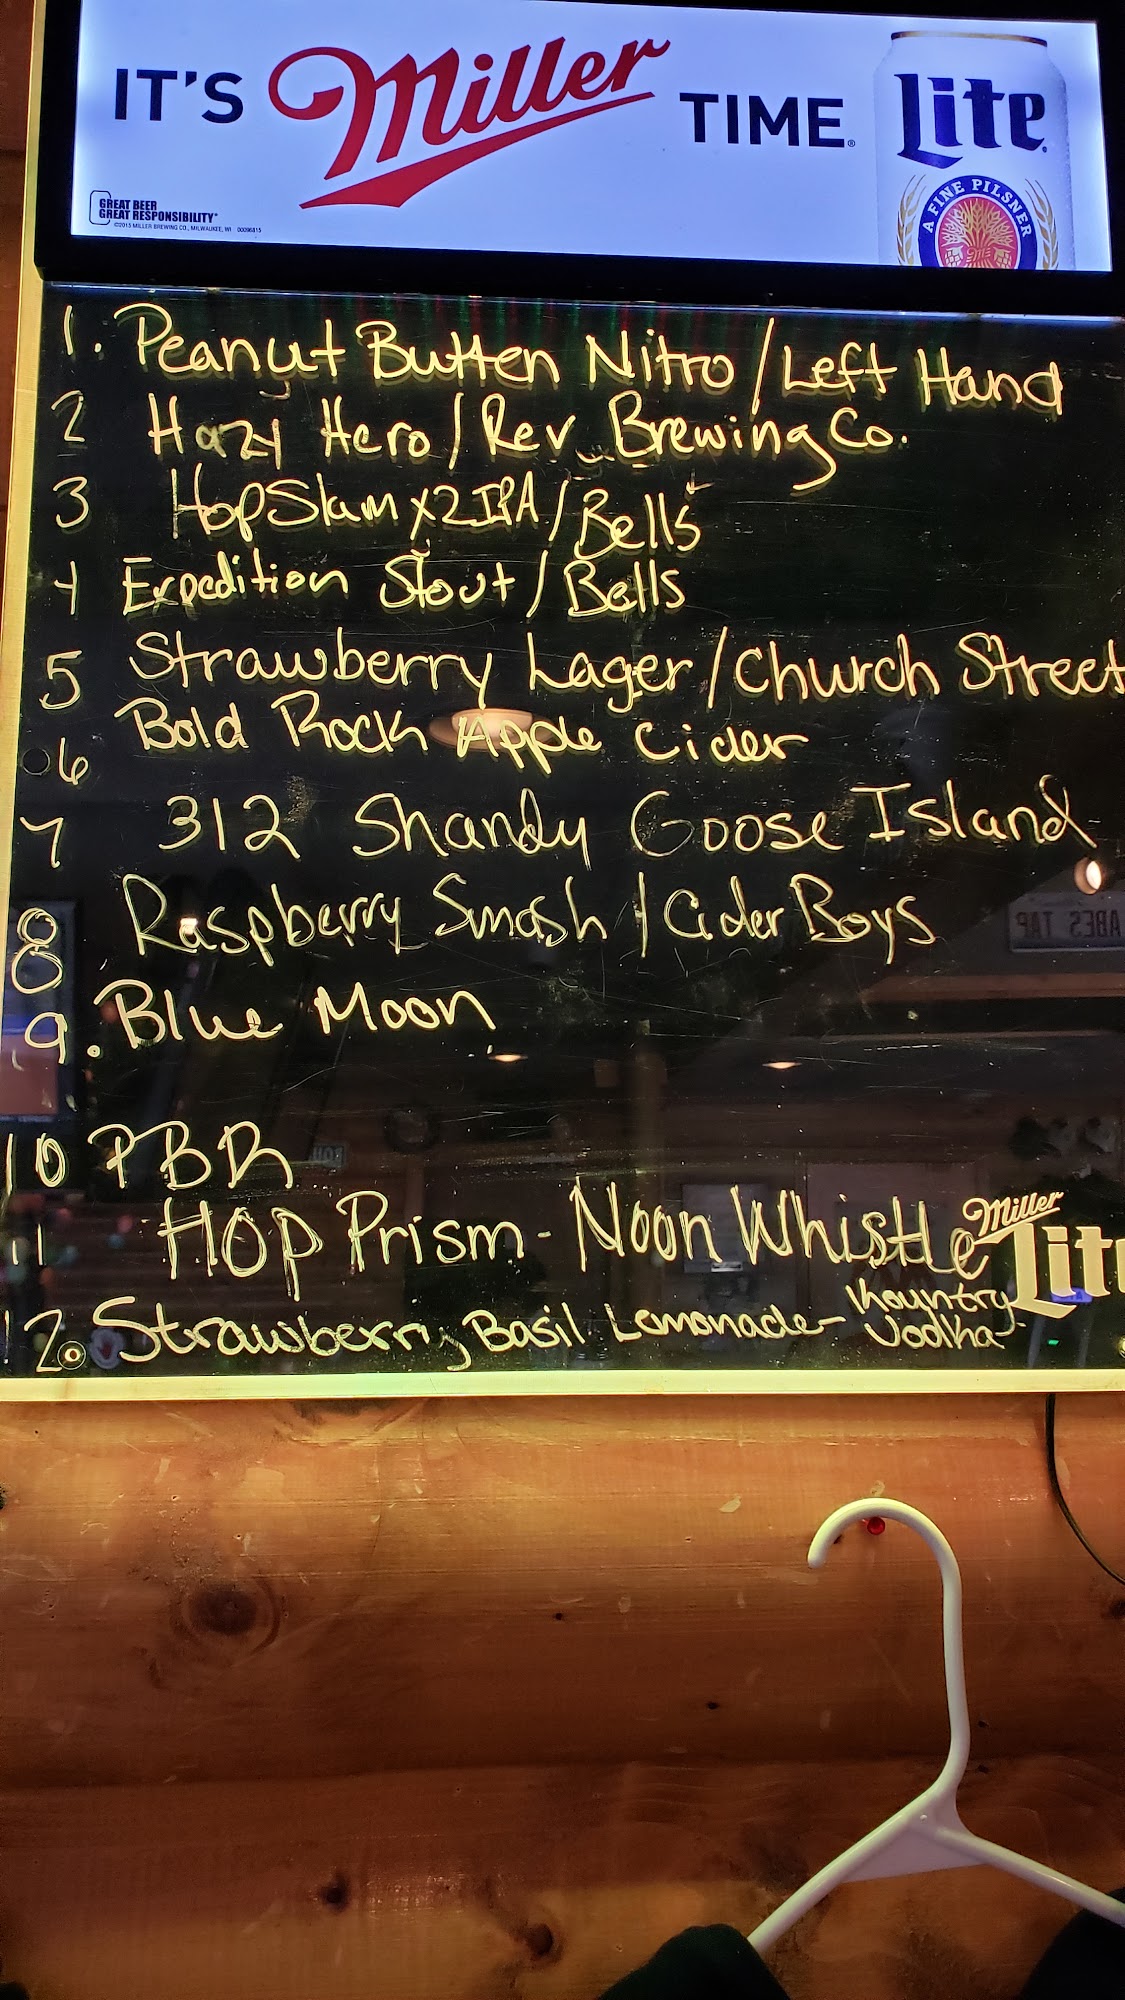 IT'S Miller TIME®
Lite
A FINE PILSNER
GREAT BEER
GREAT RESPONSIBILITY®
©2015 MILLER BREWING CO., MILWAUKEE, WI
1. Peanut Butter Nitro / Left Hand
2 Hazy Hero / Rev Brewing Co.
3 HopSlam x2 IPA / Bells
4 Expedition Stout / Bells
5 Strawberry Lager / Church Street
6 Bold Rock Apple Cider
7 312 Shandy Goose Island
8 Raspberry Smash / Cider Boys
9. Blue Moon
10 PBR
11 HOP Prism - Noon Whistle
12. Strawberry Basil Lemonade - Kountry Vodka
Miller
Lite
ABES TAP